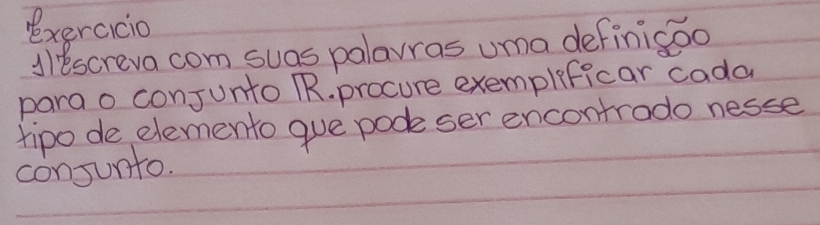 Exercicio
1) Escreva com suas palavras uma definição
para o conjunto ℝ. procure exemplificar cada
tipo de elemento que pode ser encontrado nesse
conjunto.